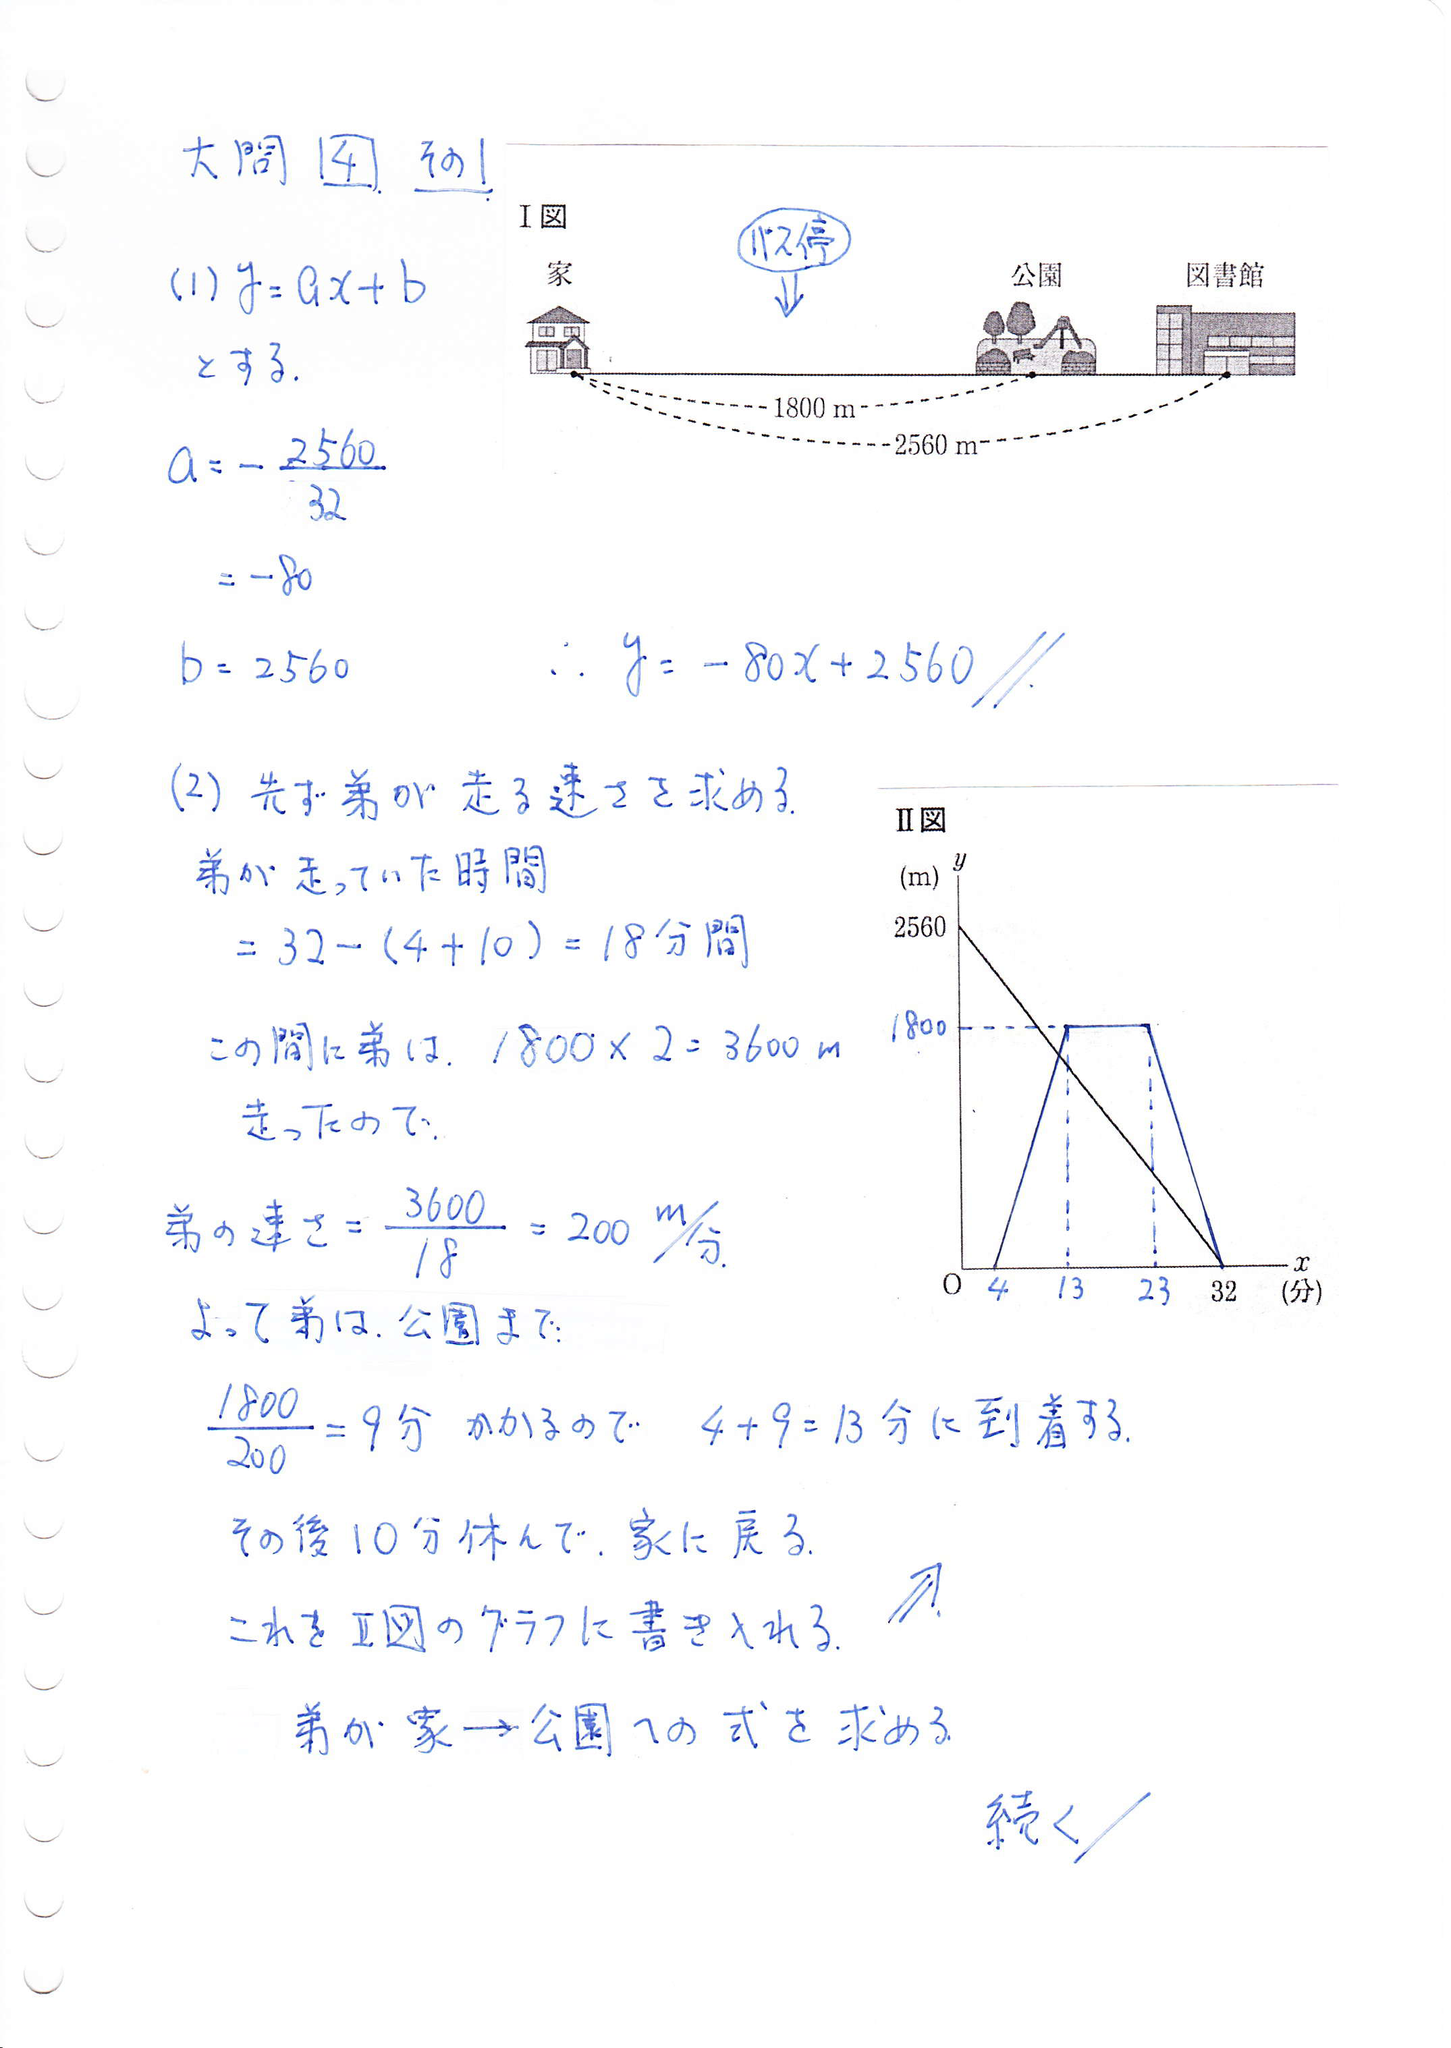 大問 4 その1
I図
バス停
家
公園
図書館
1800 m
2560 m
(1) y=ax+b
とする.
a = - 2560/32
= -80
b = 2560
∴ y = -80x+2560
(2) 先ず弟が走る速さを求める.
弟が走っていた時間
= 32-(4+10) = 18分間
この間に弟は. 1800×2=3600m
走ったので.
弟の速さ = 3600/18 = 200 m/分.
よって弟は. 公園まで
1800/200 = 9分 かかるので 4+9=13分に到着する.
その後10分休んで. 家に戻る.
これをⅡ図のグラフに書き入れる.
弟が家→公園への式を求める.
続く
Ⅱ図
y
(m)
2560
1800
O
4
13
23
32
x
(分)